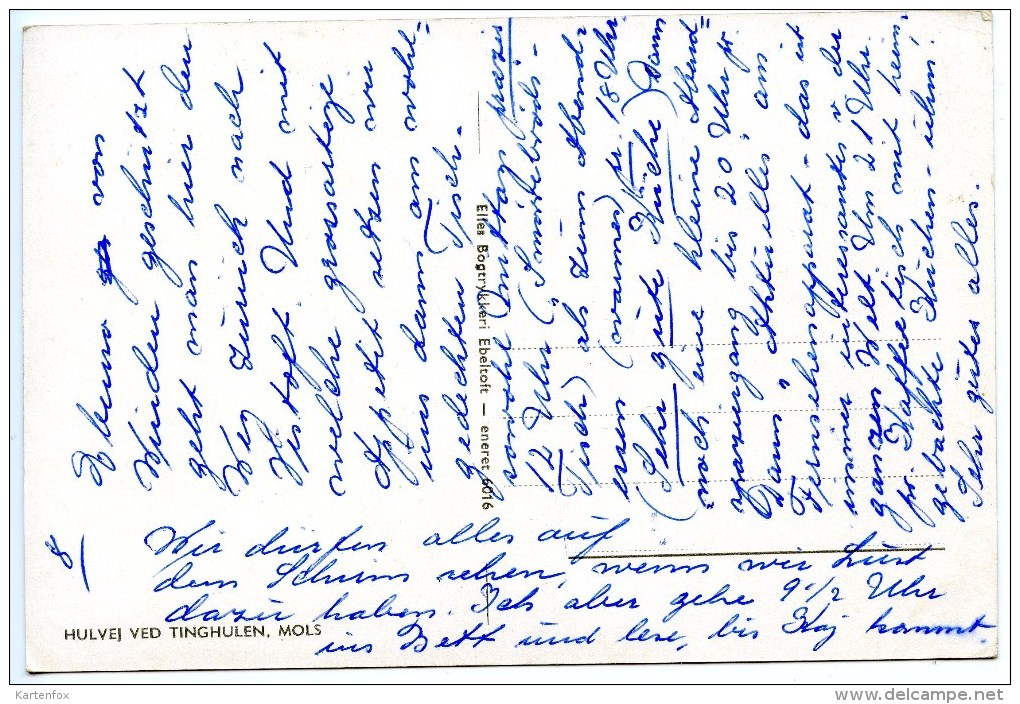 8
Wenn von
Winden geschützt
geht man hier den
Weg zurück nach
Vistoft. Und mit
welche grossartige
Appetit setzen wir
uns dann am wohl-
gedeckten Tisch -
sowohl mittag präzis
12 Uhr (Smörrebröds-
Tisch) als zum Abend-
essen (warmes) pr. 18 Uhr
(Sehr gute Küche) Dann
noch eine kleine Abend-
spaziergang bis 20 Uhr pr.
Dann "Aktuelles" am
Fernsehenapparat - das ist
immer interessantes v. der
ganzen Welt. Um 21 Uhr
pr. Kaffeetisch mit heim-
gebackte Kuchen - uhm!
Sehr gutes alles.
Wir dürfen alles auf
dem Schirm sehen, wenn wir Lust
dazu haben. Ich aber gehe 9 1/2 Uhr
ins Bett und lese, bis Kaj kommt.
Elles Bogtrykkeri Ebeltoft — eneret 6016
HULVEJ VED TINGHULEN, MOLS
Kartenfox
www.delcampe.net